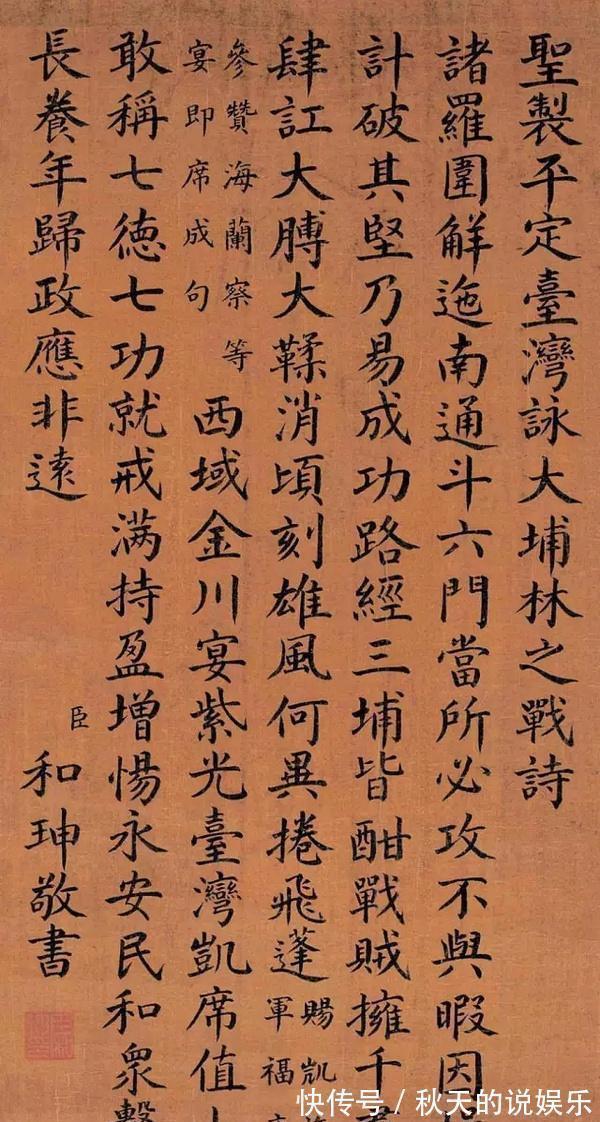 聖製平定臺灣詠大埔林之戰詩
諸羅圍解迤南通斗六門當所必攻不與暇因
計破其堅乃易成功路經三埔皆酣戰賊擁千
肆訌大膊大鞣消頃刻雄風何異捲飛蓬
賜凱
軍福
參贊海蘭察等
宴即席成句
西域金川宴紫光臺灣凱席值
敢稱七德七功就戒满持盈增惕永安民和眾
長養年歸政應非遠
臣
和珅敬書
快传号／秋天的说娱乐